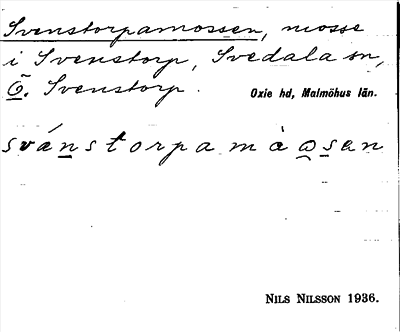 Svenstorpamossen, mosse
i Svenstorp, Svedala sn,
Ö. Svenstorp. Oxie hd, Malmöhus län.
svánstorpamàosen
NILS NILSSON 1936.